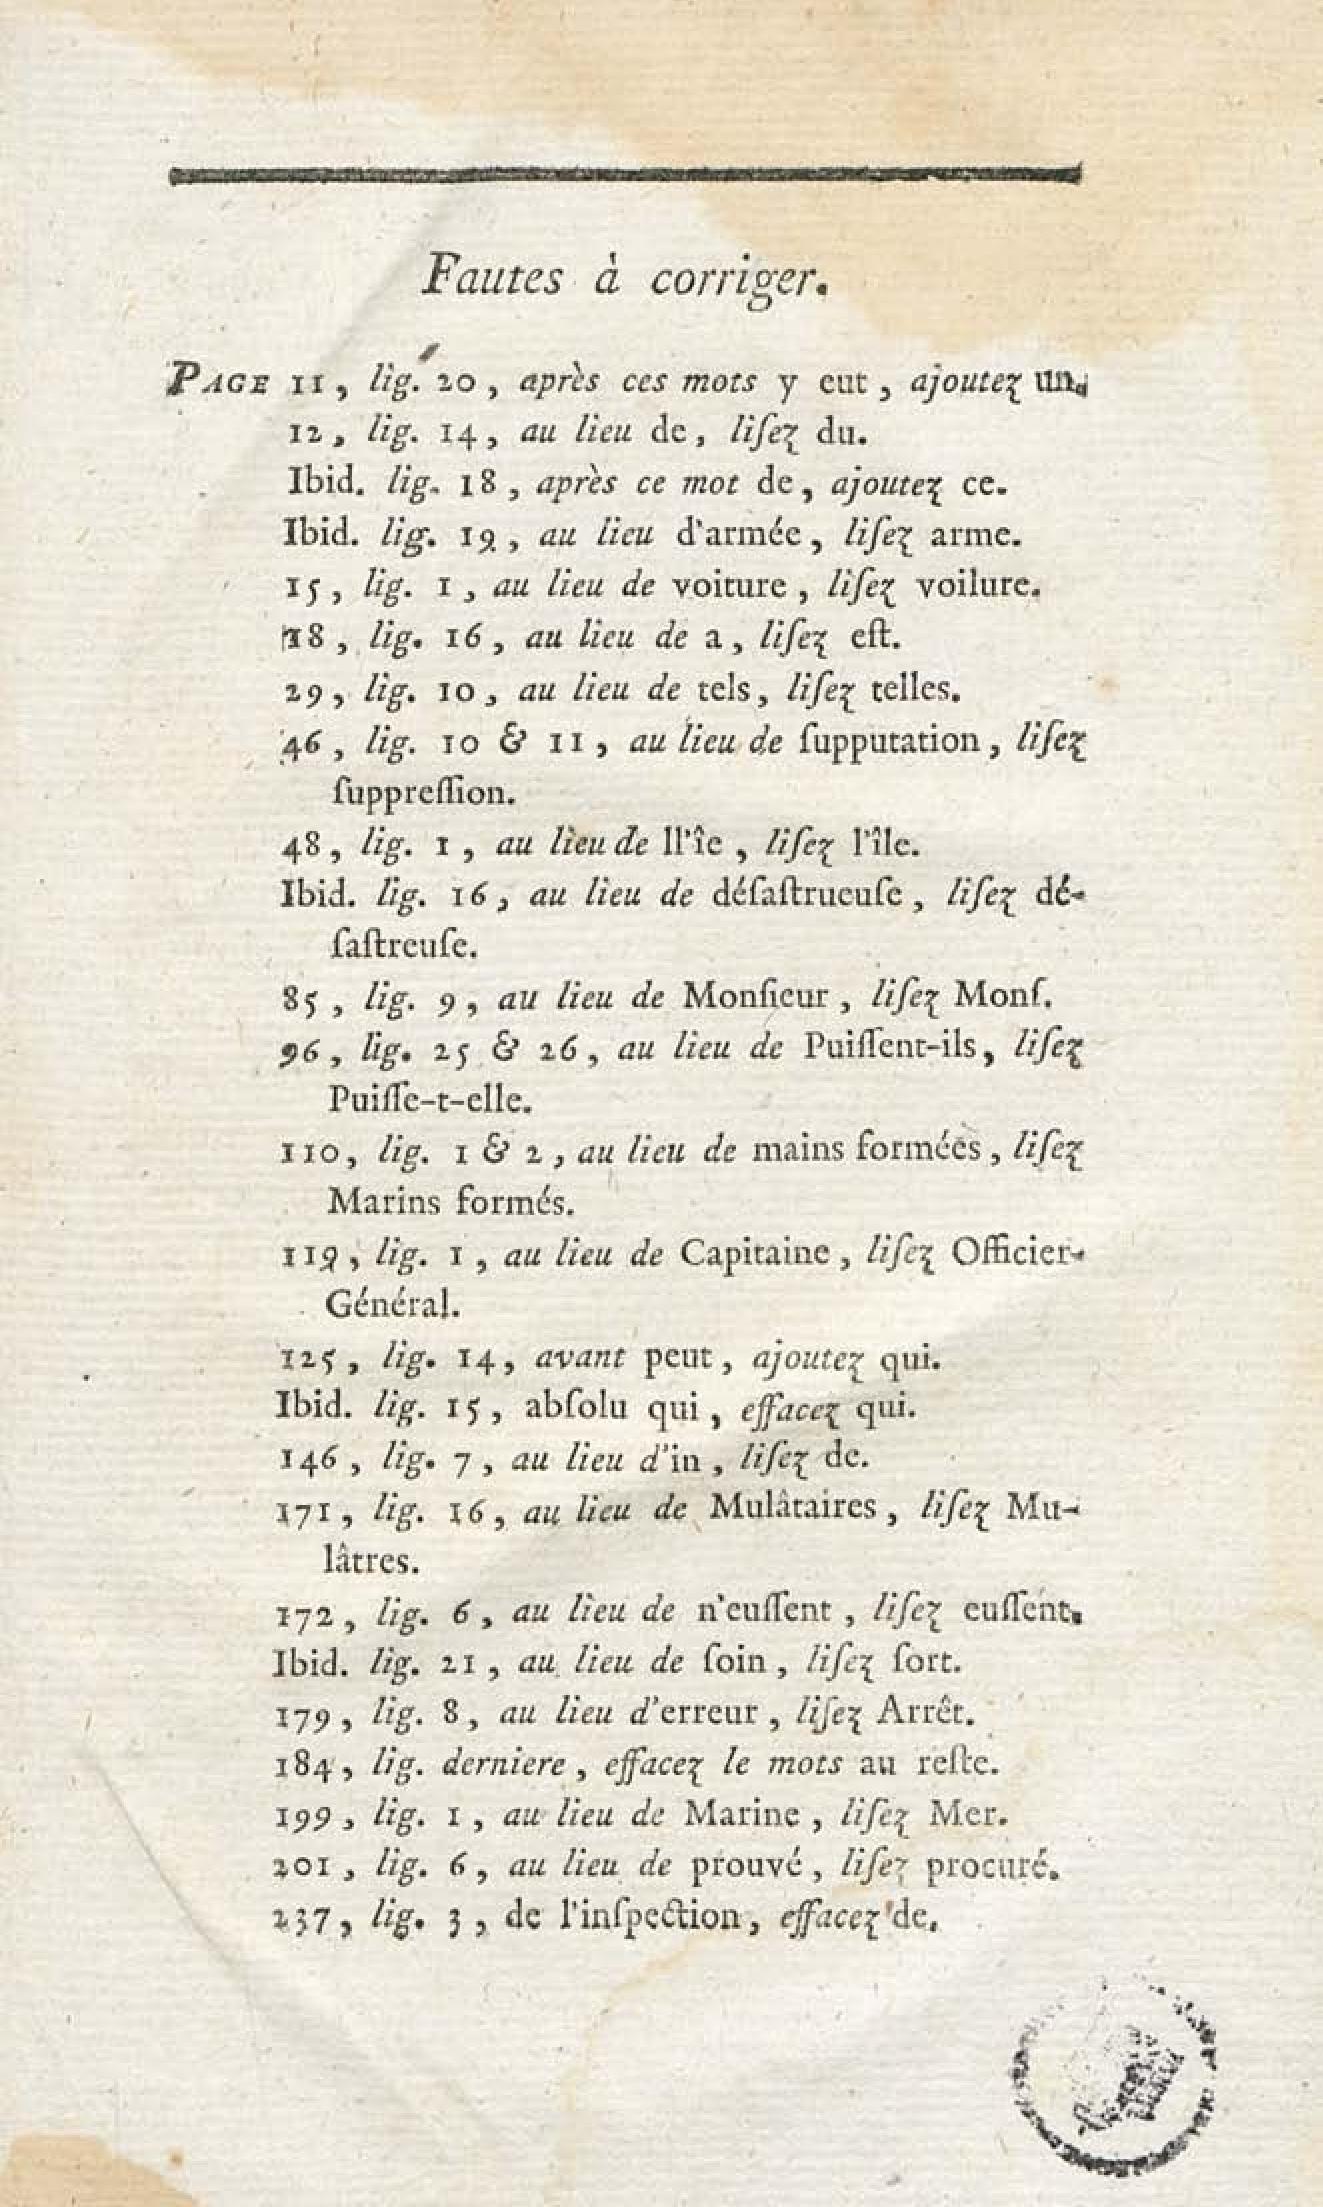 Fautes à corriger.
PAGE 11, lig. 20, après ces mots y eut, ajoutez un.
12, lig. 14, au lieu de, liſez du.
Ibid. lig. 18, après ce mot de, ajoutez ce.
Ibid. lig. 19, au lieu d'armée, liſez arme.
15, lig. 1, au lieu de voiture, liſez voilure.
18, lig. 16, au lieu de a, liſez eſt.
29, lig. 10, au lieu de tels, liſez telles.
46, lig. 10 & 11, au lieu de ſupputation, liſez
ſuppreſſion.
48, lig. 1, au lieu de ll'îe, liſez l'île.
Ibid. lig. 16, au lieu de déſaſtrueuſe, liſez dé-
ſaſtreuſe.
85, lig. 9, au lieu de Monſieur, liſez Monſ.
96, lig. 25 & 26, au lieu de Puiſſent-ils, liſez
Puiſſe-t-elle.
110, lig. 1 & 2, au lieu de mains formées, liſez
Marins formés.
119, lig. 1, au lieu de Capitaine, liſez Officier-
Général.
125, lig. 14, avant peut, ajoutez qui.
Ibid. lig. 15, abſolu qui, effacez qui.
146, lig. 7, au lieu d'in, liſez de.
171, lig. 16, au lieu de Mulâtaires, liſez Mu-
lâtres.
172, lig. 6, au lieu de n'euſſent, liſez euſſent.
Ibid. lig. 21, au lieu de ſoin, liſez ſort.
179, lig. 8, au lieu d'erreur, liſez Arrêt.
184, lig. derniere, effacez le mots au reſte.
199, lig. 1, au lieu de Marine, liſez Mer.
201, lig. 6, au lieu de prouvé, liſez procuré.
237, lig. 3, de l'inſpection, effacez de.